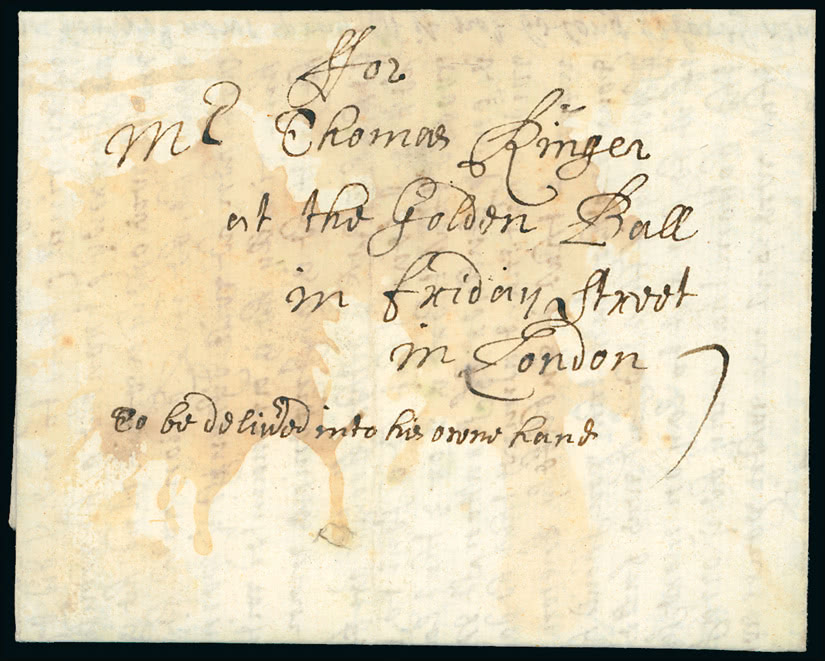 ffor
Mr Thomas Kinger
at the Golden Ball
in friday Street
in London
To be deliu'ed into his owne hands